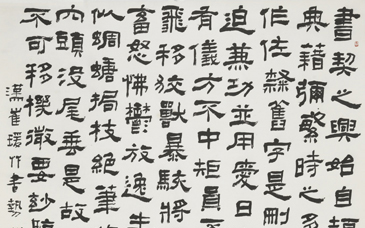 書契之興始自頡
典藉彌繁時之多
作佐隸舊字是刪
迫兼功並用愛日
有儀方不中矩員
飛移狡獸暴駭將
畜怒怫鬱放逸生
似蜩螗挶枝絕筆
内頭没尾垂是故
不可移機微要妙
漢崔瑗作書勢